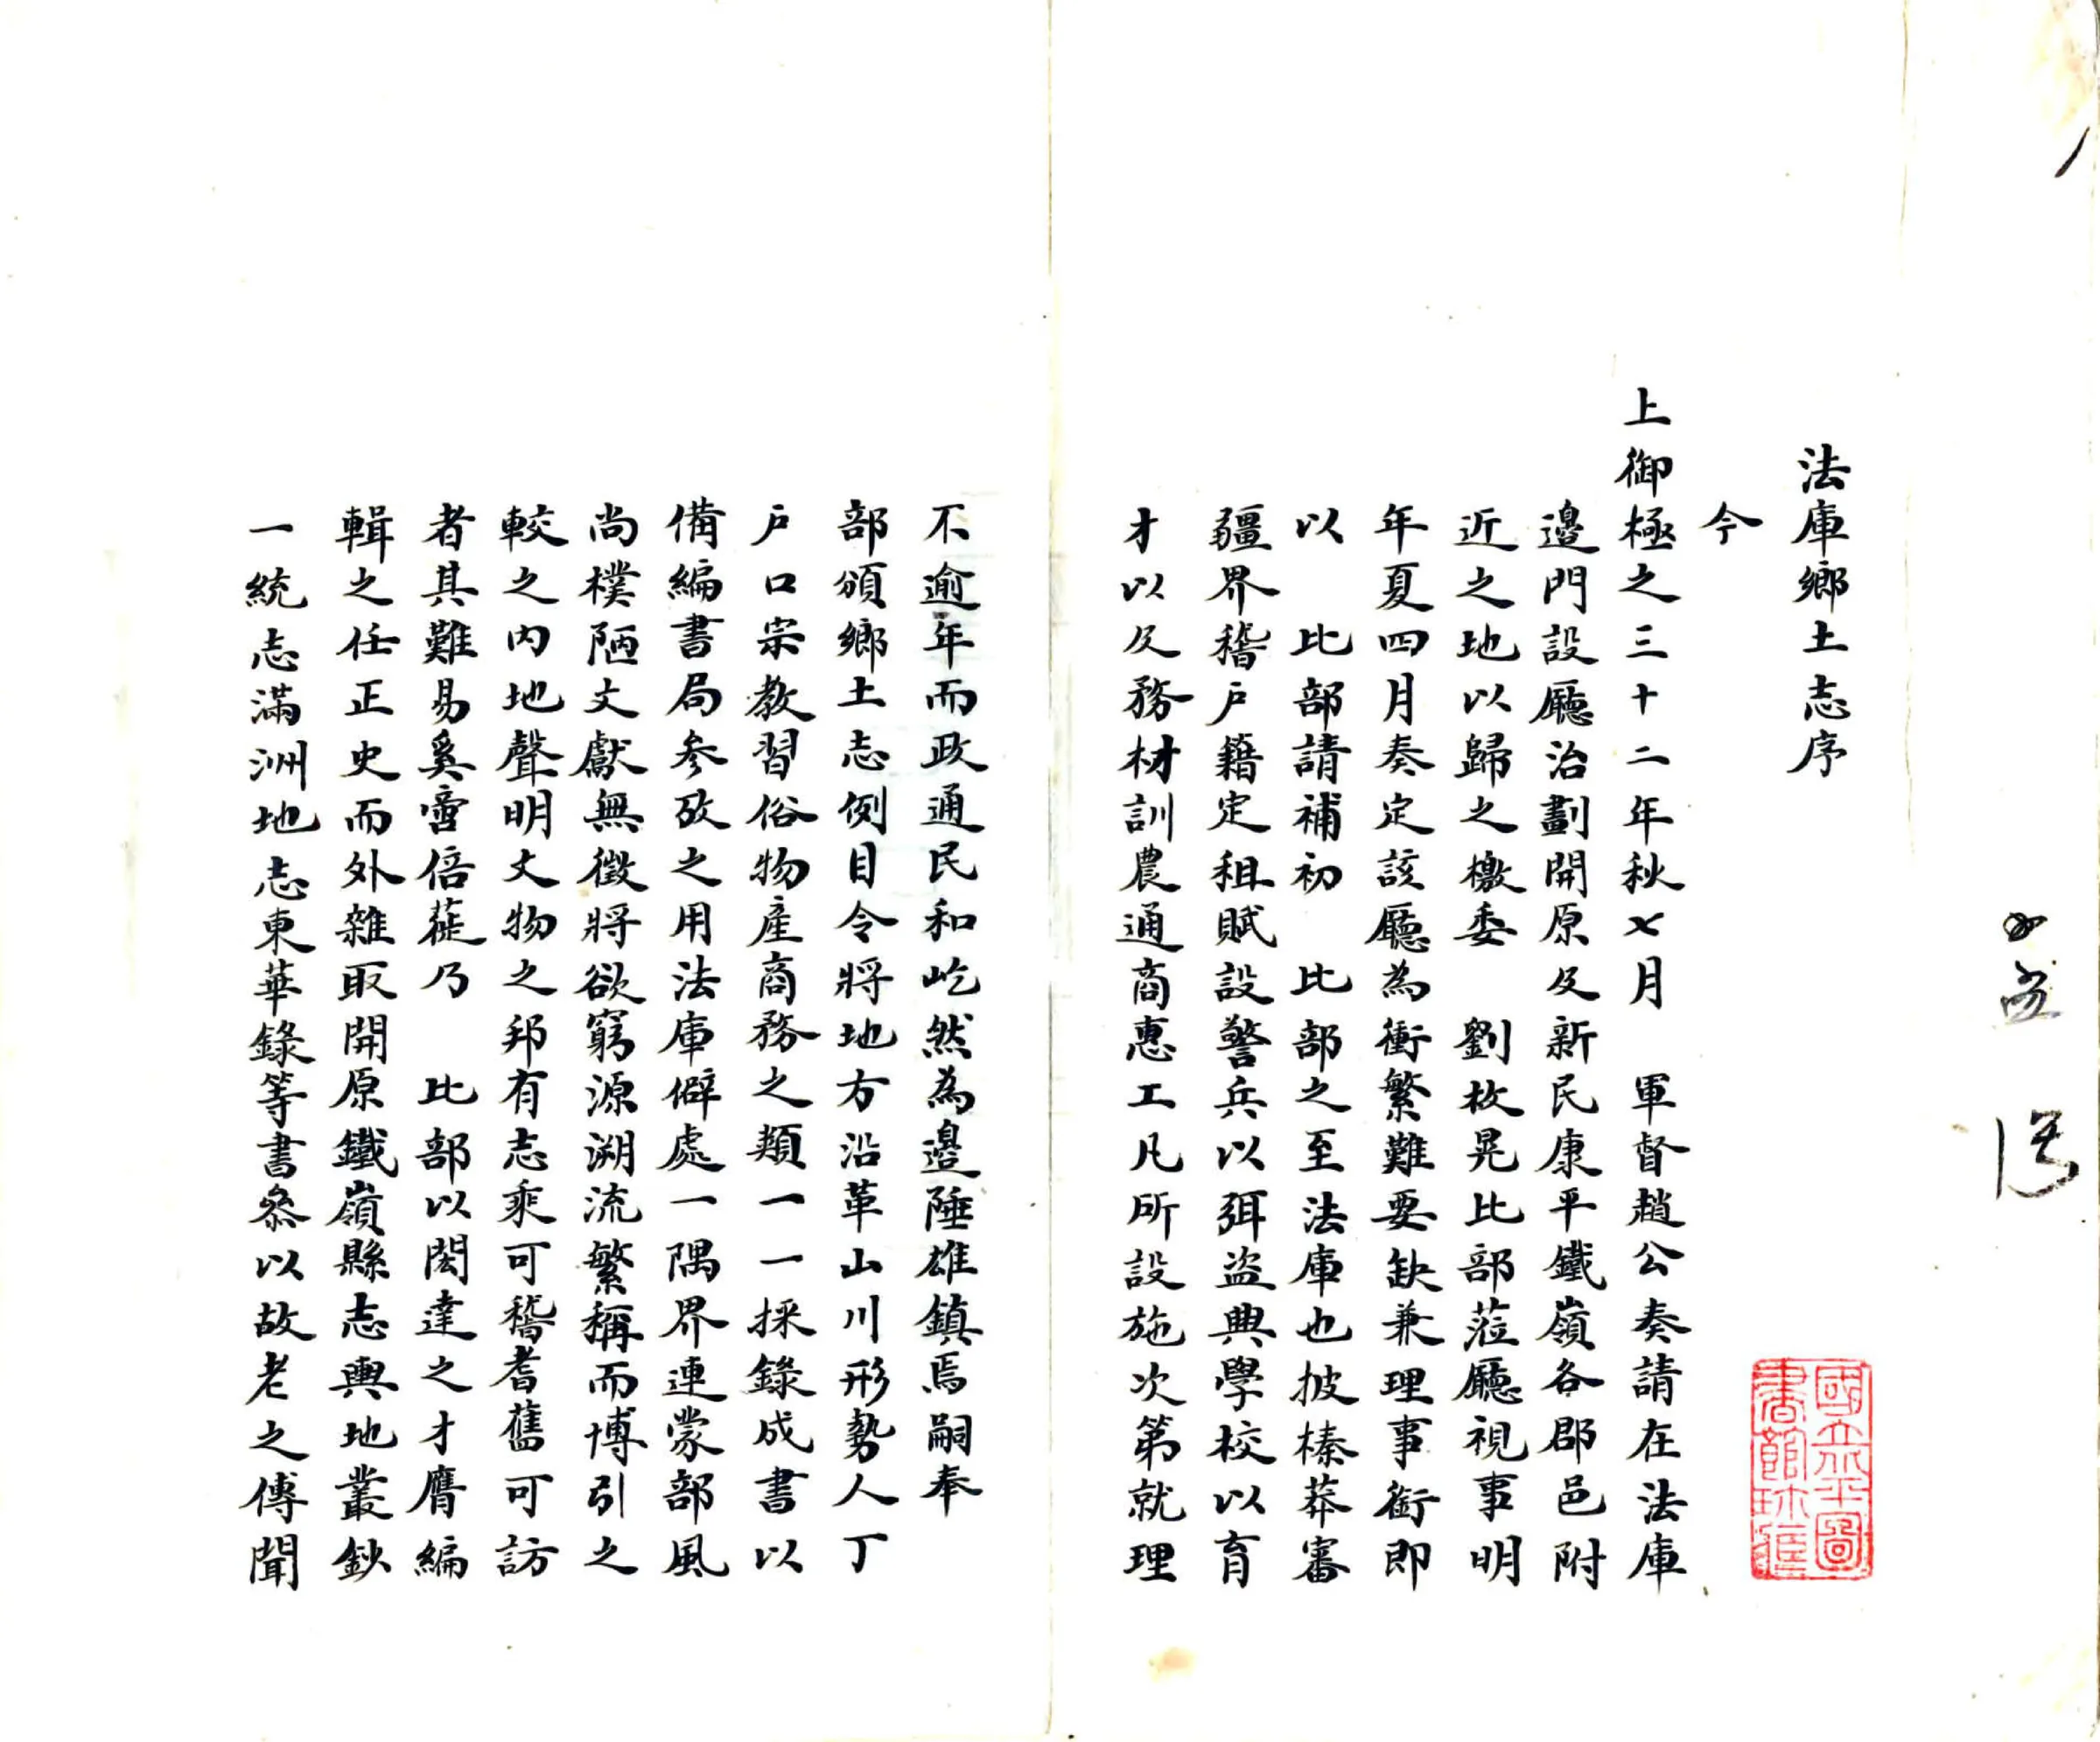 法庫鄉土志序
今
上御極之三十二年秋七月　軍督趙公奏請在法庫
邊門設廳治劃開原及新民康平鐵嶺各郡邑附
近之地以歸之檄委　劉枚晃比部蒞廳視事明
年夏四月奏定該廳為衝繁難要缺兼理事銜即
以　比部請補初　比部之至法庫也披榛莽審
疆界稽戶籍定租賦設警兵以弭盜典學校以育
才以及務材訓農通商惠工凡所設施次第就理
不逾年而政通民和屹然為邊陲雄鎮焉嗣奉
部頒鄉土志例目令將地方沿革山川形勢人丁
戶口宗教習俗物產商務之類一一採錄成書以
備編書局參攷之用法庫僻處一隅界連蒙部風
尚樸陋文獻無徵將欲窮源溯流繁稱而博引之
較之內地聲明文物之邦有志乘可稽耆舊可訪
者其難易奚啻倍蓰乃　比部以閎達之才膺編
輯之任正史而外雜取開原鐵嶺縣志輿地叢鈔
一統志滿洲地志東華錄等書叅以故老之傳聞
國立北平圖
書館珍藏